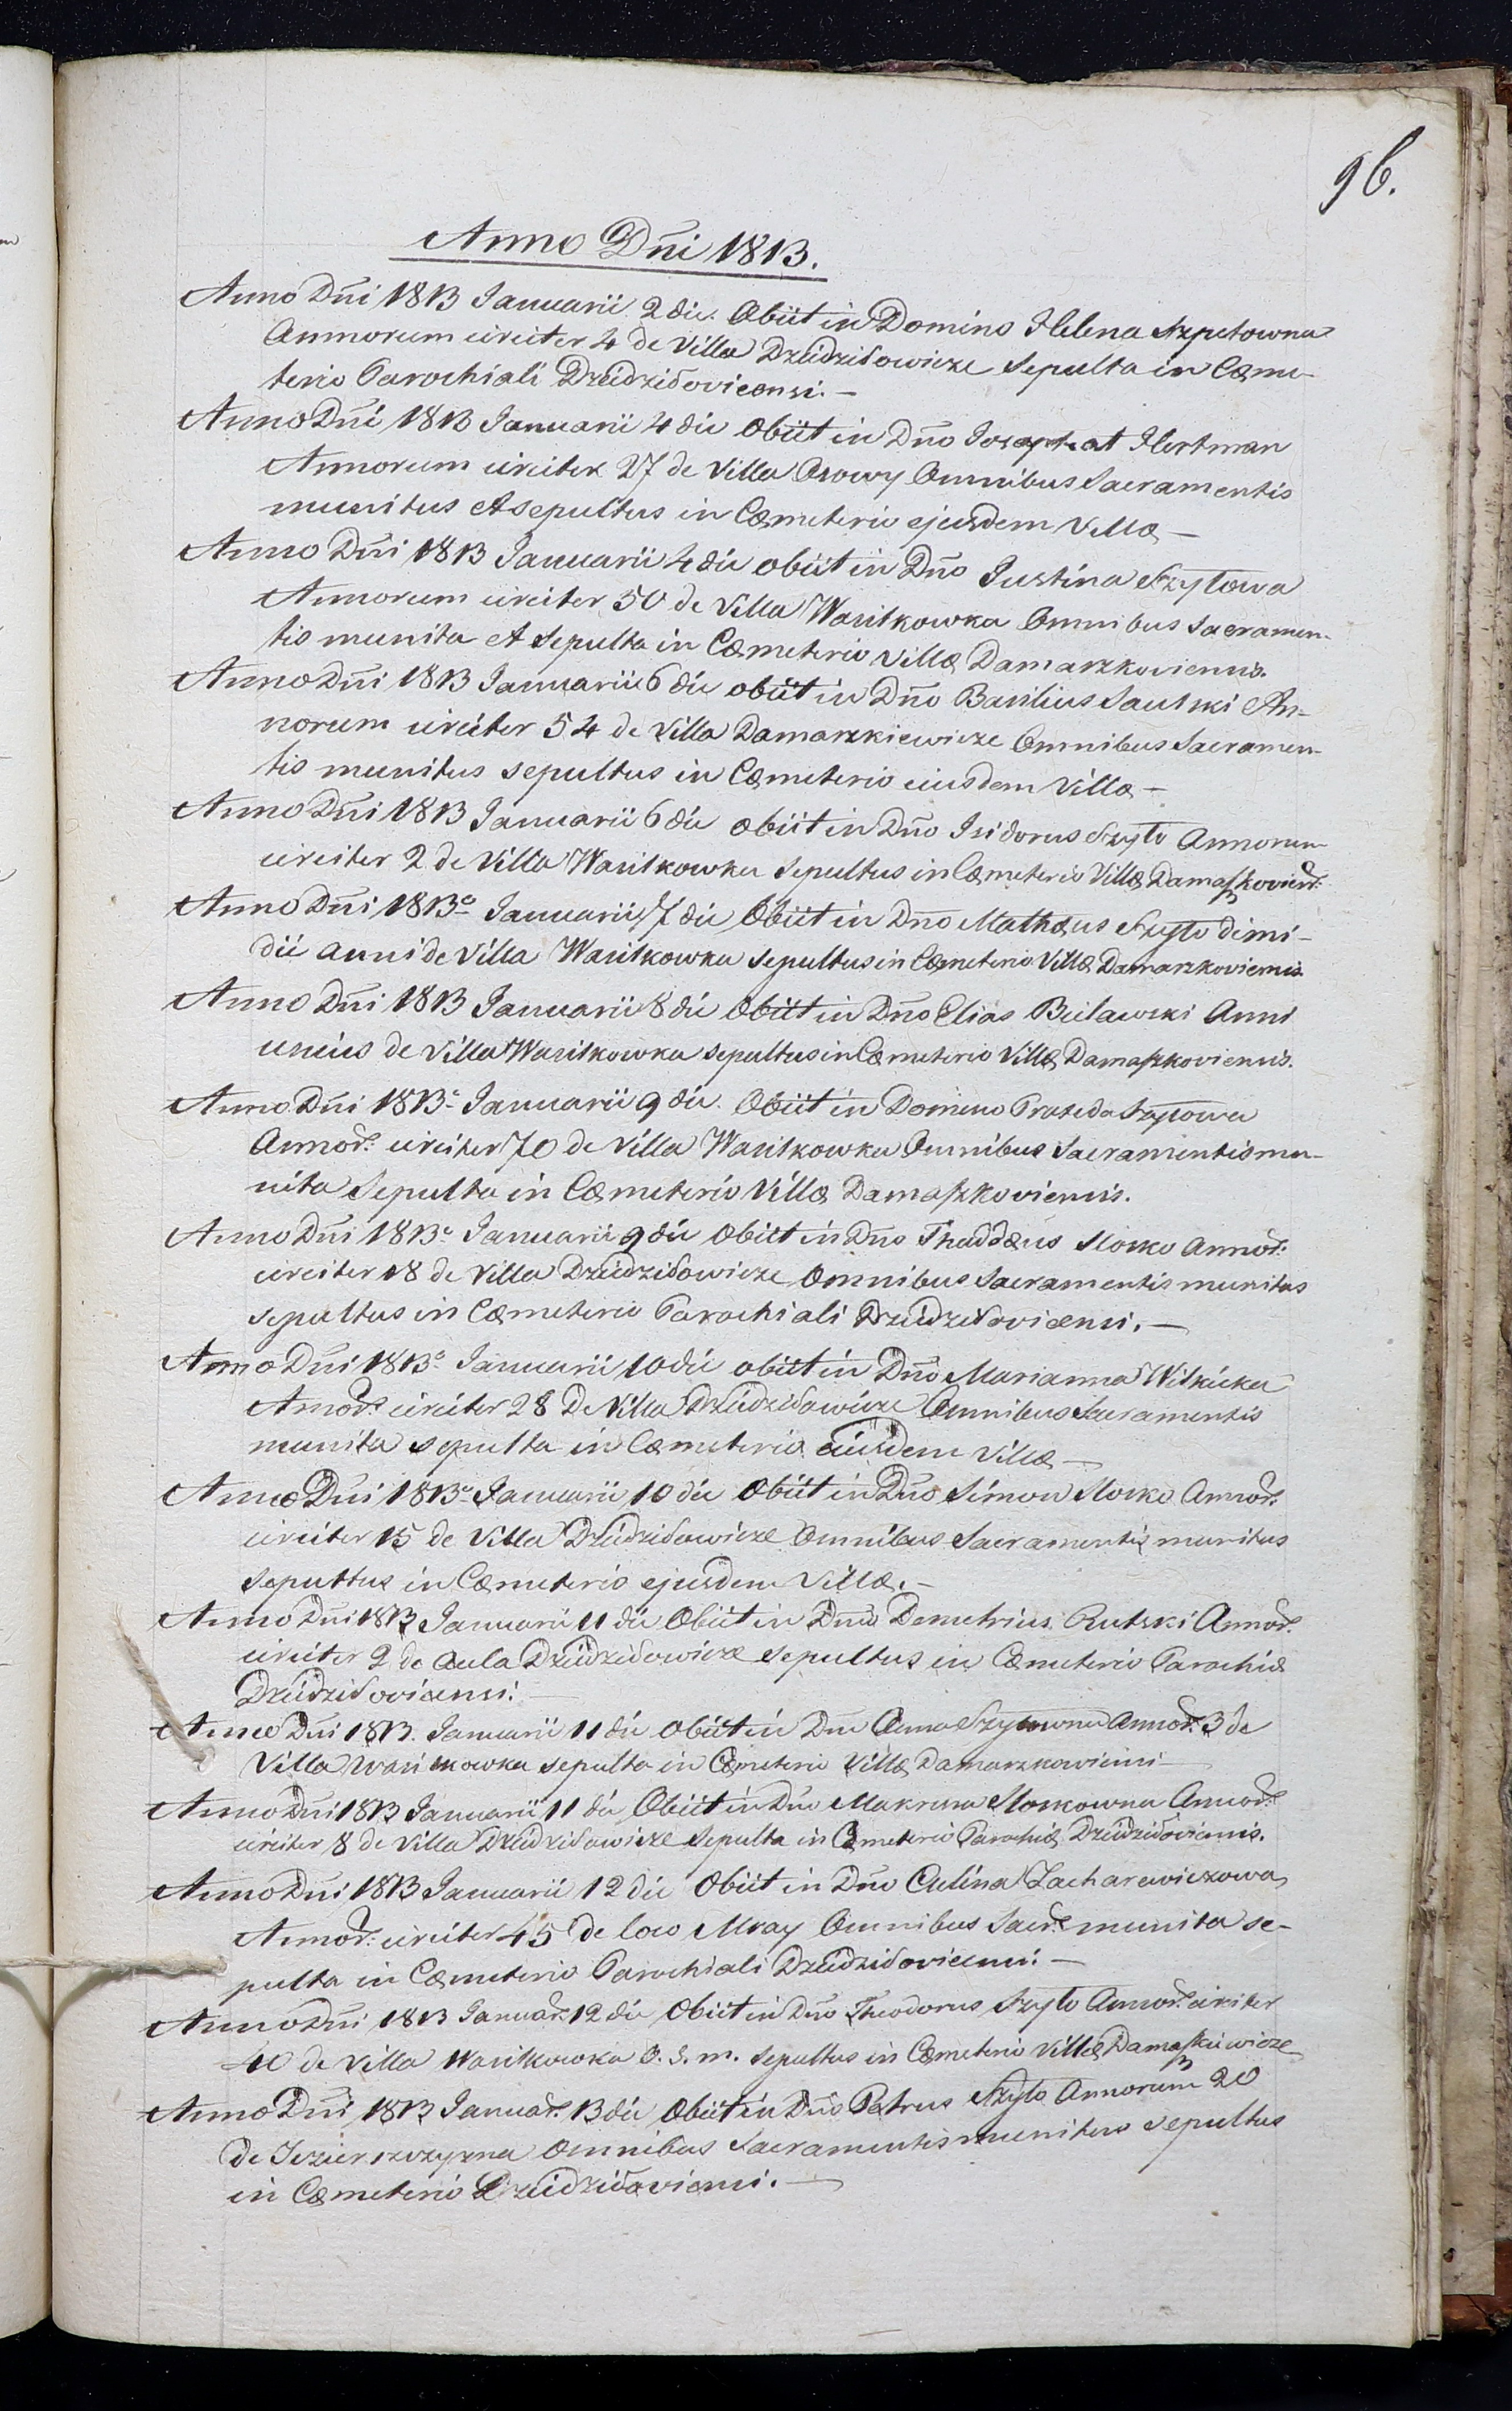 96.
Anno Dñi 1813.
Anno Dñi 1813 Januarii 2 die. Obiit in Domino Helena Szpetowna
Annorum circiter 4 de Villa Dziedziłowicze Sepulta in Cæme-
terio Parochiali Dziedziłovicensi. —
Anno Dñi 1813 Januarii 4 die Obiit in Dño Josaphat Hertman
Annorum circiter 27 de Villa Osowy Omnibus Sacramentis
munitus et sepultus in Cæmeterio ejusdem Villæ —
Anno Dñi 1813 Januarii 4 die obiit in Dño Justina Szytowa
Annorum circiter 50 de Villa Wasilkowka Omnibus Sacramen-
tis munita et Sepulta in Cæmeterio Villæ Damaszkoviensis.
Anno Dñi 1813 Januarii 6 die obiit in Dño Basilius Sautski An-
norum circiter 54 de Villa Damaszkiewicze Omnibus Sacramen-
tis munitus sepultus in Cæmeterio eiusdem Villæ —
Anno Dñi 1813 Januarii 6 die obiit in Dño Isidorus Szyto Annorum
circiter 2 de Villa Wasilkowka Sepultus in Cæmeterio Villæ
Anno Dñi 1813º Januarii 7 die Obiit in Dño Mathæus Szyto dimi-
dii anni de Villa Wasilkowka sepultus in Cæmeterio Villæ Damaszkoviensis
Anno Dñi 1813 Januarii 8 die Obiit in Dño Elias Bielawski Anni
unius de Villa Wasilkowka sepultus in Cæmeterio Villæ Damaszkoviensis.
Anno Dñi 1813º Januarii 9 die. Obiit in Domino Praxeda Szytowa
Annor: circiter 70 de Villa Wasilkowka Omnibus Sacramentis mu-
nita Sepulta in Cæmeterio Villæ Damaszkoviensis.
Anno Dñi 1813º Januarii 9 die Obiit in Dño Thaddæus Słonko Annor:
circiter 18 de Villa Dziedziłowicze Omnibus Sacramentis munitus
sepultus in Cæmeterio Parochiali Dziedziłovicensi. —
Anno Dñi 1813º Januarii 10 die obiit in Dño Marianna Witkicka
Annor: circiter 28 de Villa Dziedziłowicze Omnibus Sacramentis
munita sepulta in Cæmeterio eiusdem Villæ —
Anno Dñi 1813º Januarii 10 die Obiit in Dño Simon Słonko Annor:
circiter 15 de Villa Dziedziłowicze Omnibus Sacramentis munitus
Sepultus in Cæmeterio ejusdem Villæ. —
Anno Dñi 1813 Januarii 11 die Obiit in Dño Demetrius Rutski Annor:
circiter 2 de Aula Dziedziłowicze sepultus in Cæmeterio Parochiæ
Dziedziłovicensi. —
Anno Dñi 1813. Januarii 11 die Obiit in Dño Anna Szytowna Annor: 3 de
Villa Wasilkowka sepulta in Cæmeterio Villæ Damaszkowiensi —
Anno Dñi 1813 Januarii 11 die Obiit in Dño Makrena Słonkowna Annor:
circiter 8 de Villa Dziedziłowicze Sepulta in Cæmeterio Parochiæ Dziedziłoviensis.
Anno Dñi 1813 Januarii 12 die Obiit in Dño Culina Zacharewiczowa
Annor: circiter 45 de loco Mray Omnibus Sacr: munita se-
pulta in Cæmeterio Parochiali Dziedziłovicensi. —
Anno Dñi 1813 Januar: 12 die Obiit in Dño Theodorus Szyto Annor: circiter
40 de Villa Wasilkowka O. S. m. Sepultus in Cæmeterio Villæ Damaszkiewicze
Anno Dñi 1813 Januar: 13 die Obiit in Dño Petrus Szyto Annorum 20
de Omnibus Sacramentis munitus sepultus
in Cæmeterio Dziedziłoviensi. —